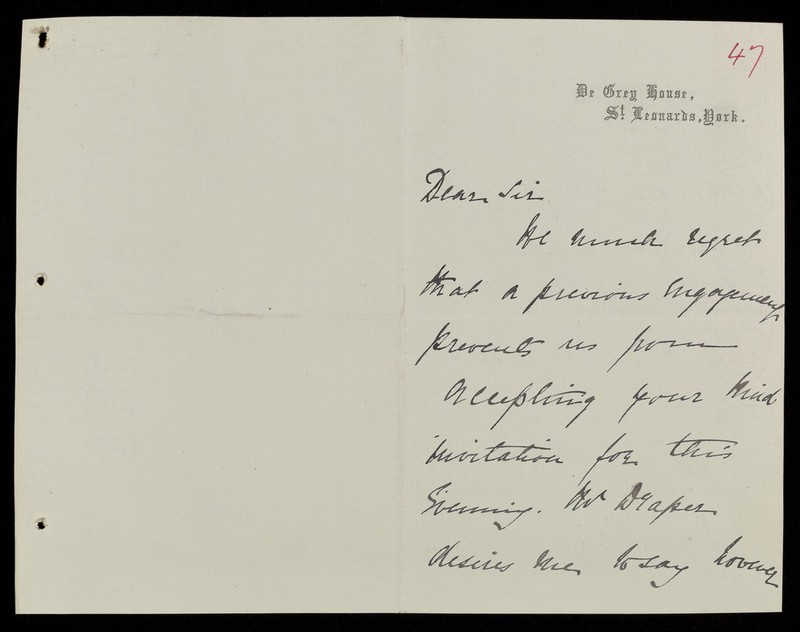 47
De Grey House,
St. Leonards, York.
Dear Sir
We much regret
that a previous Engagement
prevents us from
accepting your kind
invitation for this
Evening. Mr Draper
desires me to say however